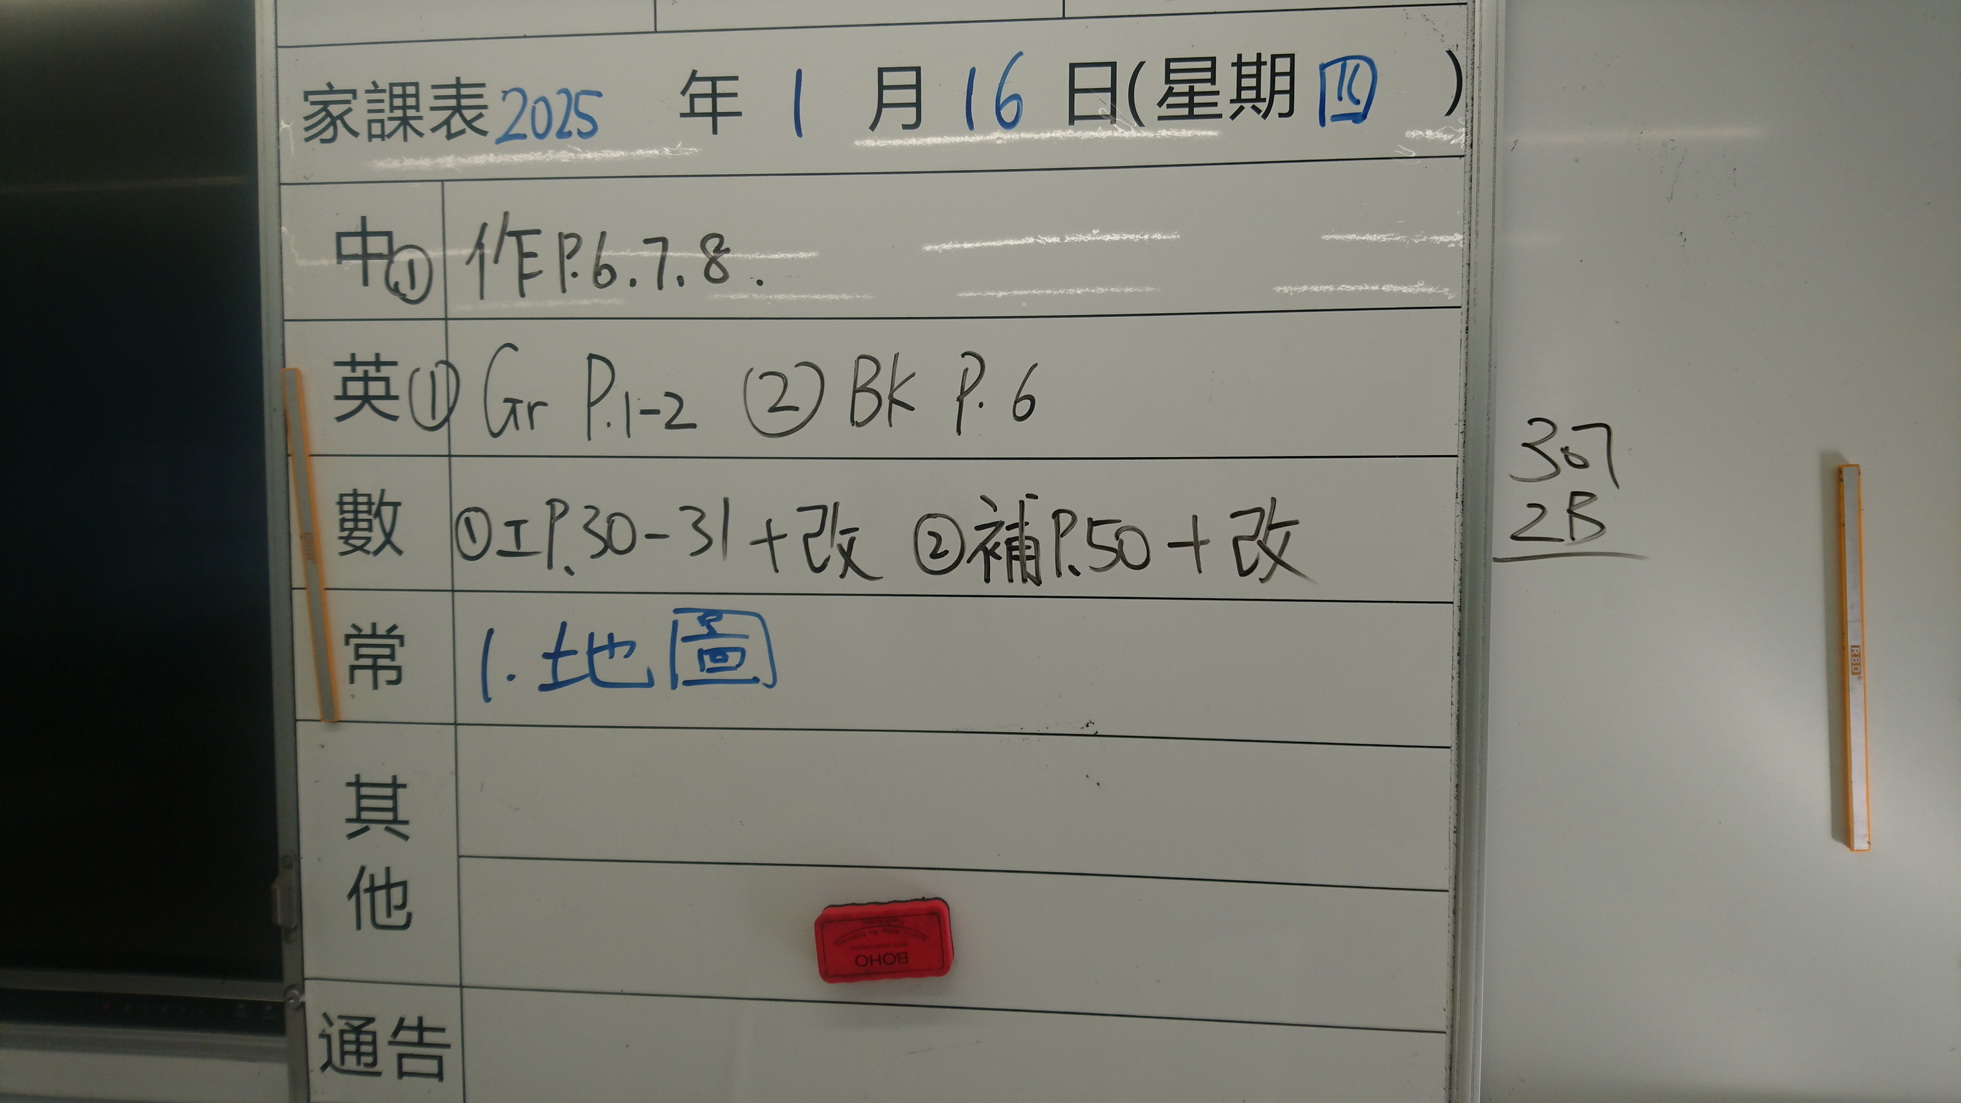 家課表 2025 年 1 月 16 日(星期 四 )
中 ① 作P.6.7.8.
英 ① Gr P.1-2 ② BK P. 6
數 ①工P.30-31+改 ②補P.50+改
常 1. 地圖
其他
通告
307
2B
BOHO
RBD